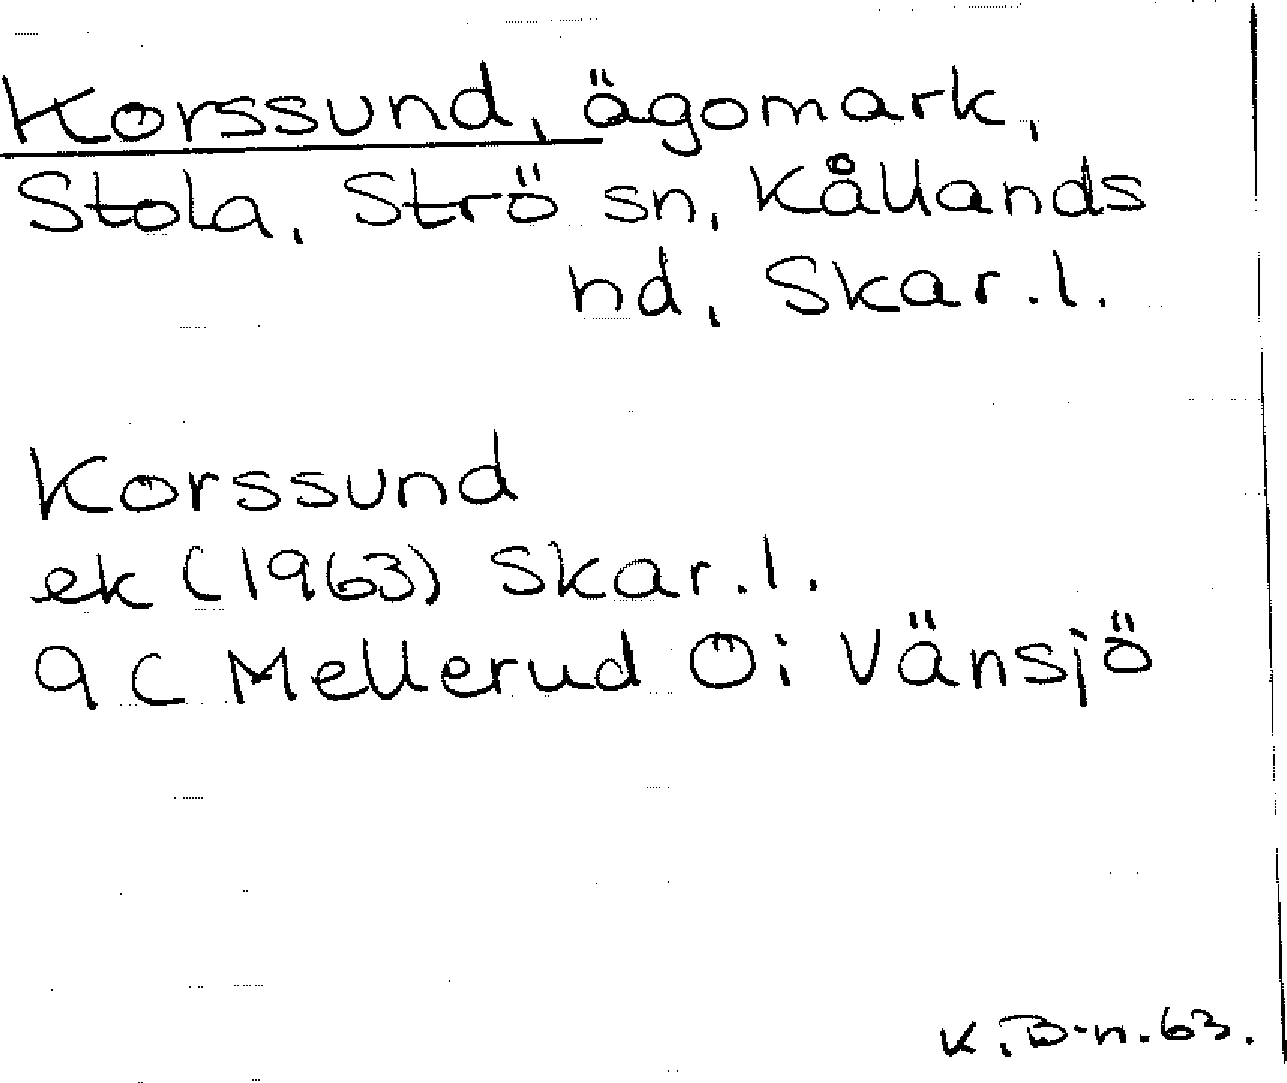 Korssund, ägomark,
Stola, Strö sn, Kållands
hd, Skar.l.
Korssund
ek (1963) Skar.l.
9C Mellerud Öi Vänsjö
K.B-n.63.